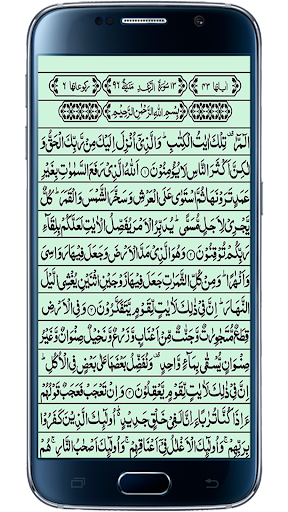 سُوْرَةُ الرَّعْدِ مَدَنِيَّةٌ
بِسْمِ اللهِ الرَّحْمٰنِ الرَّحِيْمِ
الٓمّٓرٰ ۚ تِلْكَ اٰيٰتُ الْكِتٰبِ ؕ وَالَّذِيْٓ اُنْزِلَ اِلَيْكَ مِنْ رَّبِّكَ الْحَقُّ وَ
لٰكِنَّ اَكْثَرَ النَّاسِ لَا يُؤْمِنُوْنَ ○ اَللهُ الَّذِيْ رَفَعَ السَّمٰوٰتِ بِغَيْرِ
عَمَدٍ تَرَوْنَهَا ثُمَّ اسْتَوٰى عَلَى الْعَرْشِ وَسَخَّرَ الشَّمْسَ وَالْقَمَرَ ؕ كُلٌّ
يَّجْرِيْ لِاَجَلٍ مُّسَمًّى ؕ يُدَبِّرُ الْاَمْرَ يُفَصِّلُ الْاٰيٰتِ لَعَلَّكُمْ بِلِقَآءِ
رَبِّكُمْ تُوْقِنُوْنَ ○ وَهُوَ الَّذِيْ مَدَّ الْاَرْضَ وَجَعَلَ فِيْهَا رَوَاسِيَ
وَاَنْهٰرًا ؕ وَمِنْ كُلِّ الثَّمَرٰتِ جَعَلَ فِيْهَا زَوْجَيْنِ اثْنَيْنِ يُغْشِي الَّيْلَ
النَّهَارَ ؕ اِنَّ فِيْ ذٰلِكَ لَاٰيٰتٍ لِّقَوْمٍ يَّتَفَكَّرُوْنَ ○ وَفِي الْاَرْضِ
قِطَعٌ مُّتَجٰوِرٰتٌ وَّجَنّٰتٌ مِّنْ اَعْنَابٍ وَّزَرْعٌ وَّنَخِيْلٌ صِنْوَانٌ وَّغَيْرُ
صِنْوَانٍ يُّسْقٰى بِمَآءٍ وَّاحِدٍ ۟ وَنُفَضِّلُ بَعْضَهَا عَلٰى بَعْضٍ فِي الْاُكُلِ ؕ
اِنَّ فِيْ ذٰلِكَ لَاٰيٰتٍ لِّقَوْمٍ يَّعْقِلُوْنَ ○ وَاِنْ تَعْجَبْ فَعَجَبٌ قَوْلُهُمْ
ءَاِذَا كُنَّا تُرٰبًا ءَاِنَّا لَفِيْ خَلْقٍ جَدِيْدٍ ۬ؕ اُولٰٓئِكَ الَّذِيْنَ كَفَرُوْا
بِرَبِّهِمْ ۚ وَاُولٰٓئِكَ الْاَغْلٰلُ فِيْٓ اَعْنَاقِهِمْ ۚ وَاُولٰٓئِكَ اَصْحٰبُ النَّارِ ۚ هُمْ